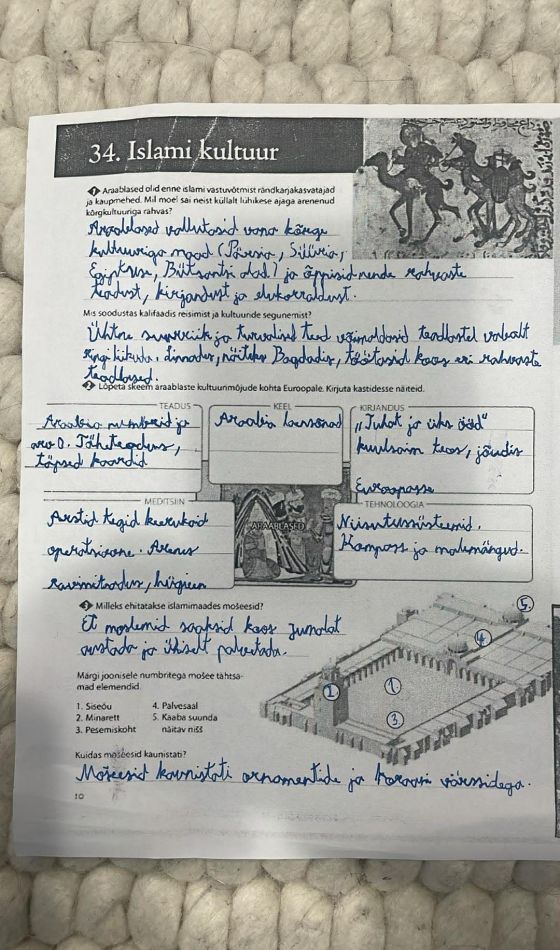 34. Islami kultuur
1 Araablased olid enne islami vastuvõtmist rändkarjakasvatajad
ja kaupmehed. Mil moel sai neist küllalt lühikese ajaga arenenud
kõrgkultuuriga rahvas?
Araablased vallutasid vana kõrge
kultuuriga maad (Pärsia, Süüria,
Egiptuse, Bütsantsi alad) ja õppisid nende rahvaste
teadust, kirjandust ja elukorraldust.
Mis soodustas kalifaadis reisimist ja kultuuride segunemist?
Ühtne suurriik ja turvalised teed võimaldasid teadlastel vabalt
ringi liikuda. Linnades, näiteks Bagdadis, töötasid koos eri rahvaste
teadlased.
2 Lõpeta skeem araablaste kultuurimõjude kohta Euroopale. Kirjuta kastidesse näiteid.
TEADUS
Araabia numbrid ja
arv 0. Täheteadus,
täpsed kaardid
KEEL
Araabia laensõnad
KIRJANDUS
„Tuhat ja üks ööd"
kuulsaim teos, jõudis
Euroopasse
MEDITSIIN
Arstid tegid keerukaid
operatsioone. Arenes
ravimiteadus, hügieen
ARAABLASED
TEHNOLOOGIA
Niisutussüsteemid.
Kompass ja malemängud.
3 Milleks ehitatakse islamimaades mošeesid?
Et moslemid saaksid koos Jumalat
austada ja ühiselt palvetada.
Märgi joonisele numbritega mošee tähtsa-
mad elemendid.
1. Siseõu
2. Minarett
3. Pesemiskoht
4. Palvesaal
5. Kaaba suunda
näitav nišš
5.
4.
2
1.
3.
Kuidas mošeesid kaunistati?
Mošeesid kaunistati ornamentide ja koraani värssidega.
10